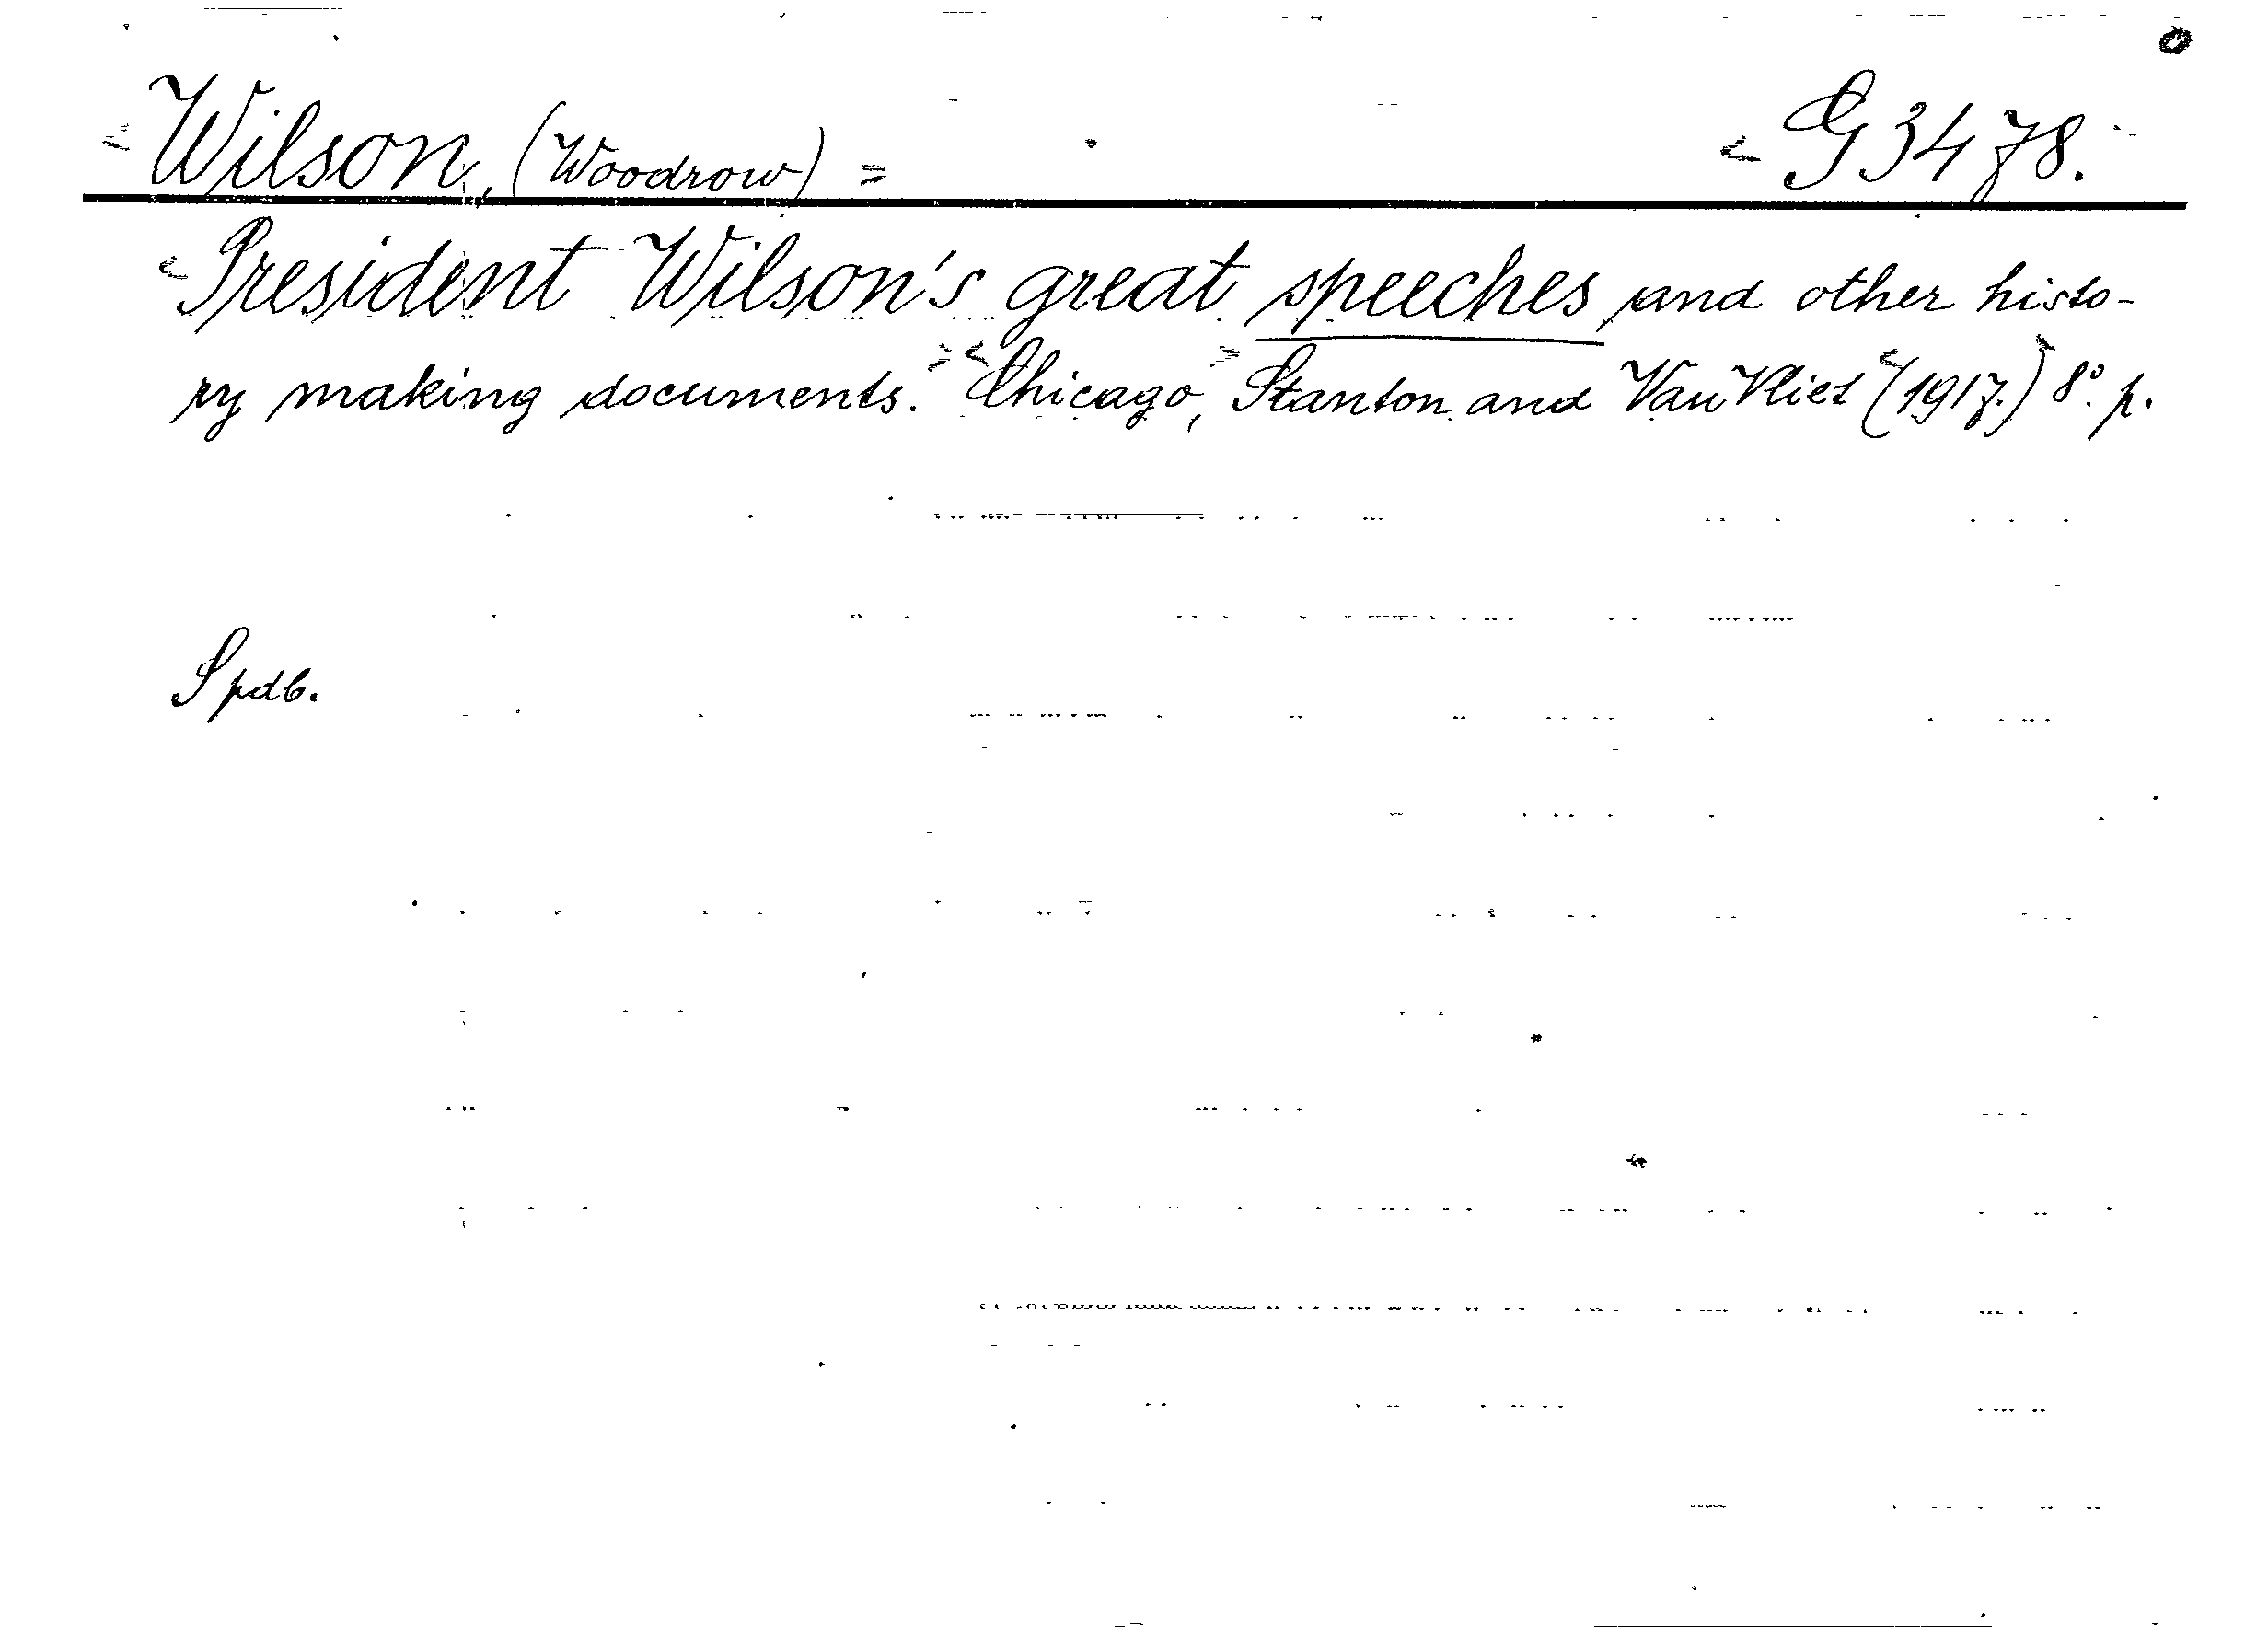 Wilson, (Woodrow) = G 3478.
President Wilson's great speeches and other histo-
ry making documents. Chicago, Stanton and Van Vliet (1917.) 8° p.
Spdb.